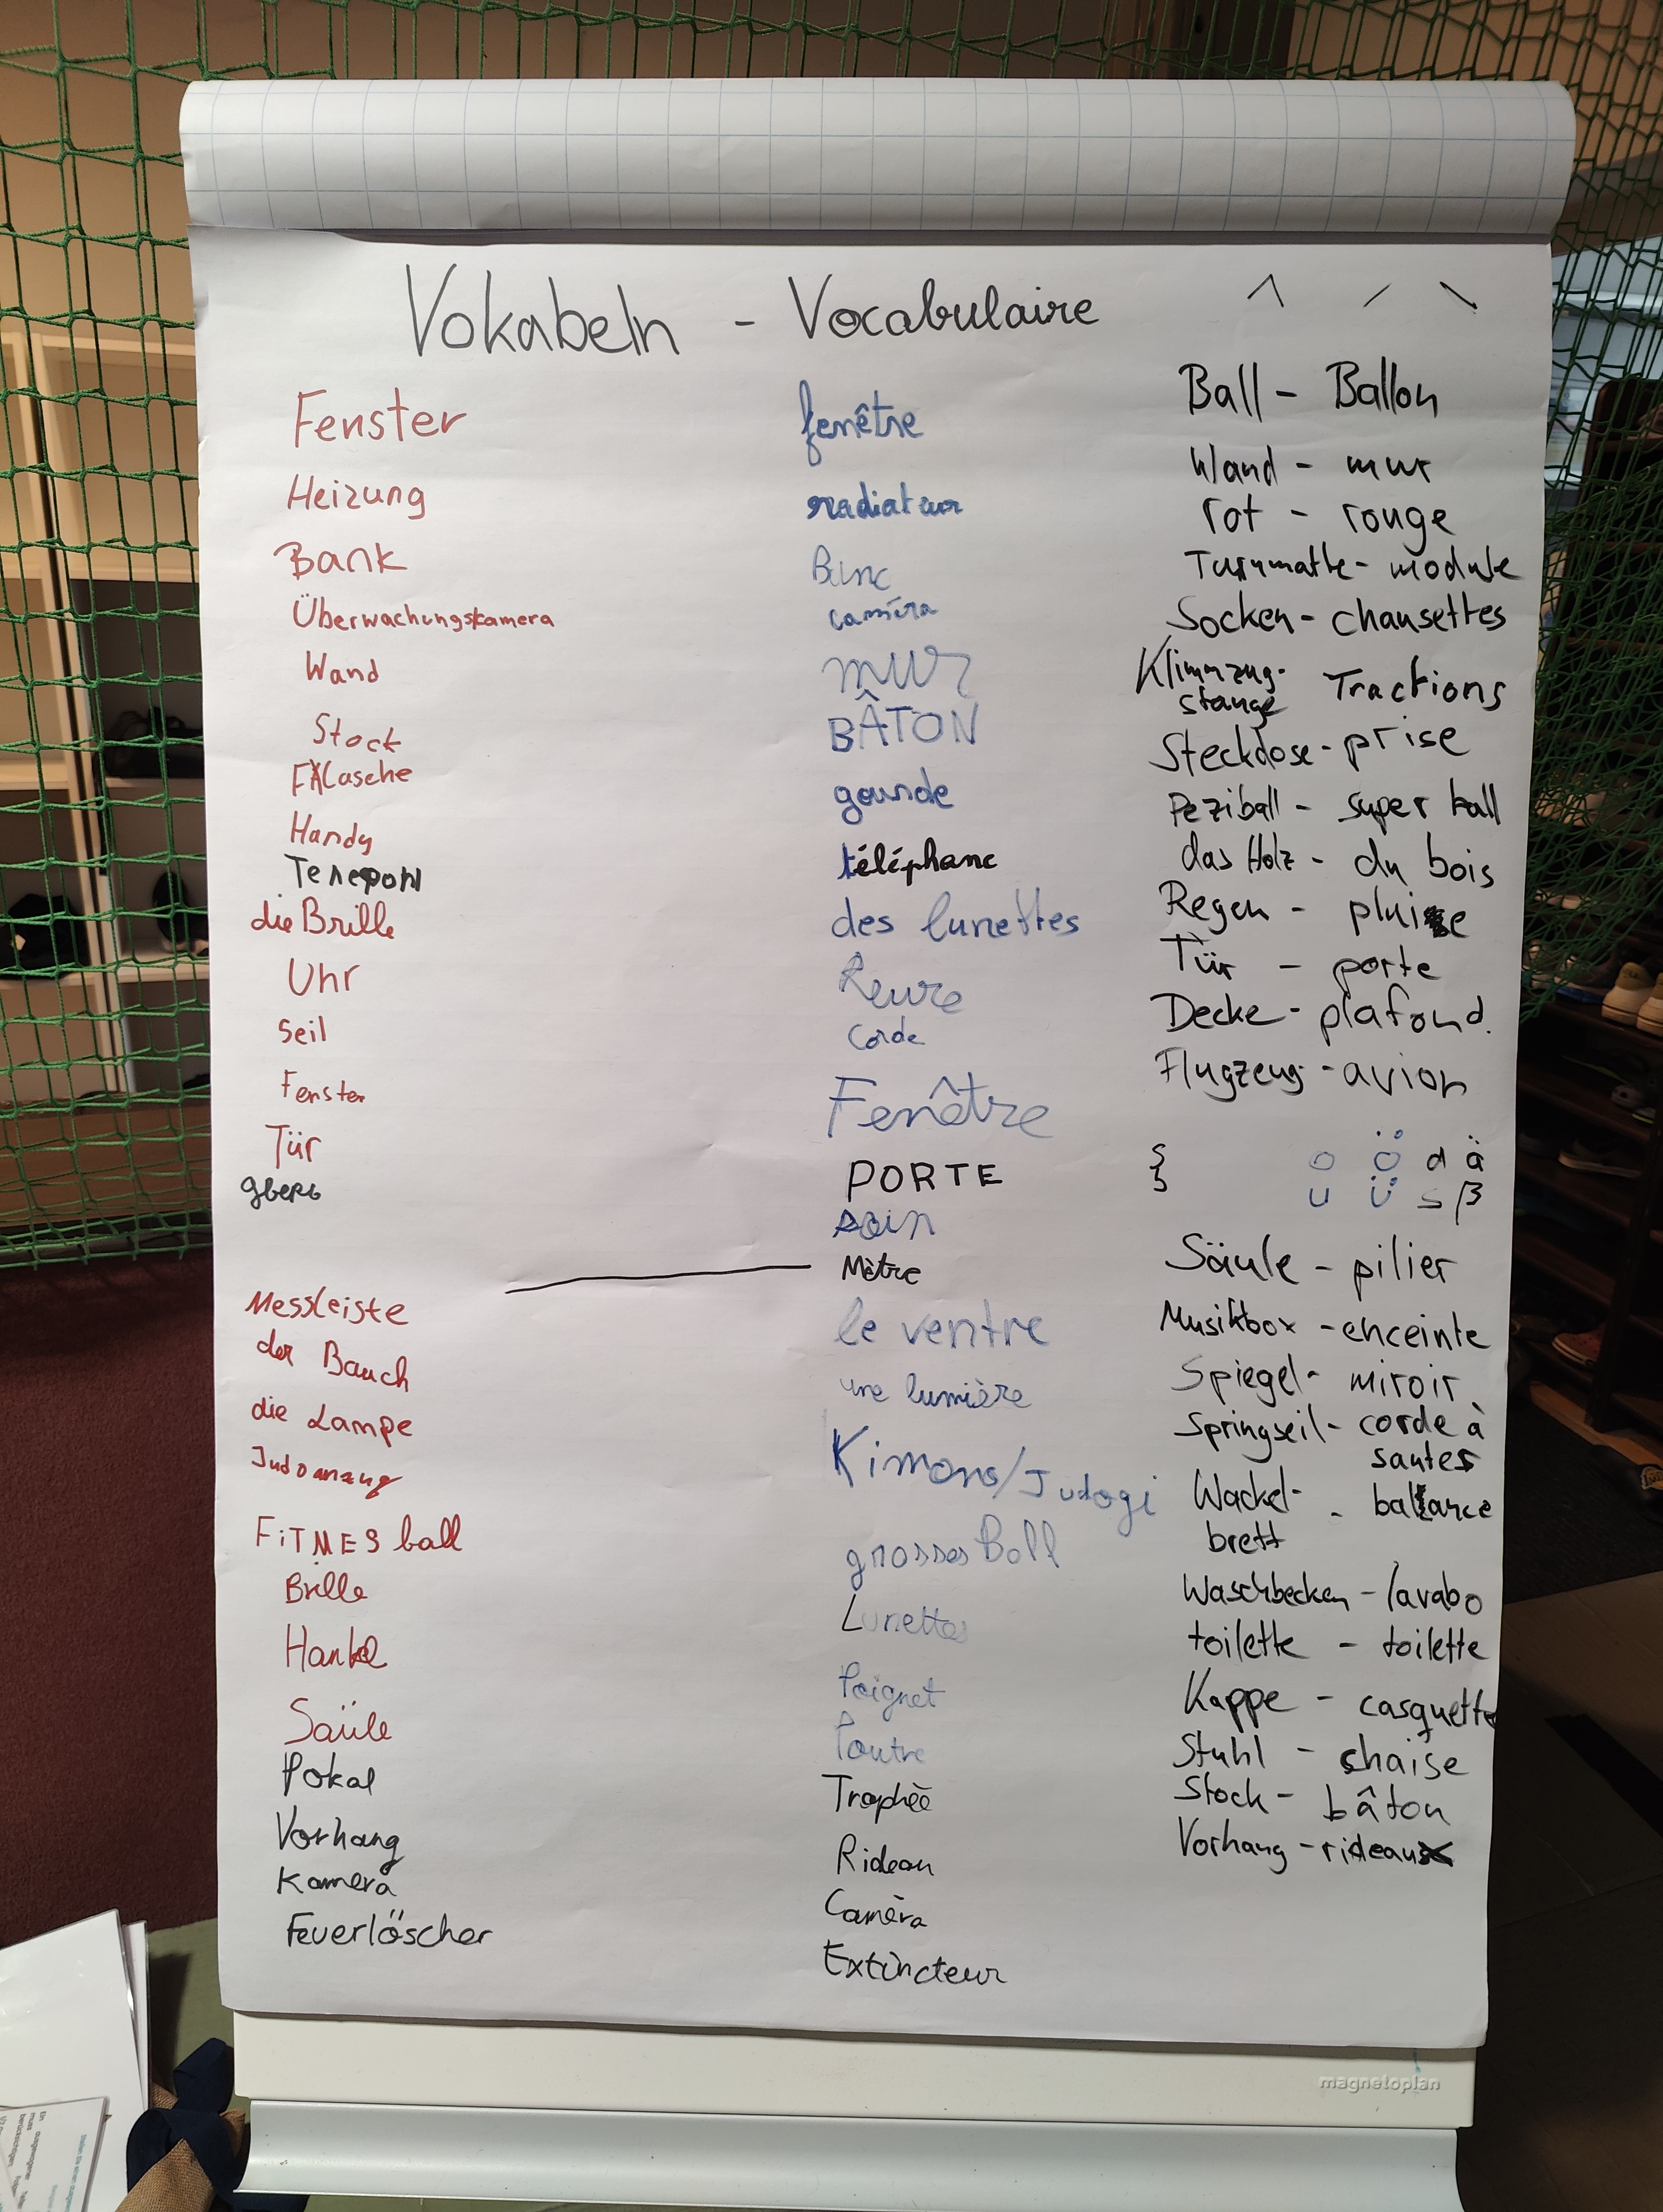 Vokabeln - Vocabulaire
Fenster
Heizung
Bank
Überwachungskamera
Wand
Stock
Flasche
Handy
Телефон
die Brille
Uhr
Seil
Fenster
Tür
дверь
Messleiste
der Bauch
die Lampe
Judoanzug
FiTMES ball
Brille
Hantel
Saüle
Pokal
Vorhang
Kamera
Feuerlöscher
fenêtre
radiateur
Banc
caméra
mur
BÂTON
gourde
téléphone
des lunettes
corde
Fenêtre
PORTE
soin
Mètre
le ventre
une lumière
Kimono/Judogi
grosses Ball
Lunettes
Poignet
Poutre
Trophèe
Rideau
Camèra
Extincteur
Ball - Ballon
Wand - mur
rot - rouge
Turnmatte - module
Socken - chausettes
Klimmzug-
stange Tractions
Steckdose - prise
Peziball - super ball
das Holz - du bois
Regen - pluie
Tür - porte
Decke - plafond.
Flugzeug - avion
o ö a ä
u ü s ß
Säule - pilier
Musikbox - enceinte
Spiegel - miroir
Springseil - corde à
sauter
Wackel- - balance
brett
Waschbecken - lavabo
toilette - toilette
Kappe - casquette
Stuhl - chaise
Stock - bâton
Vorhang - rideau
magnetoplan